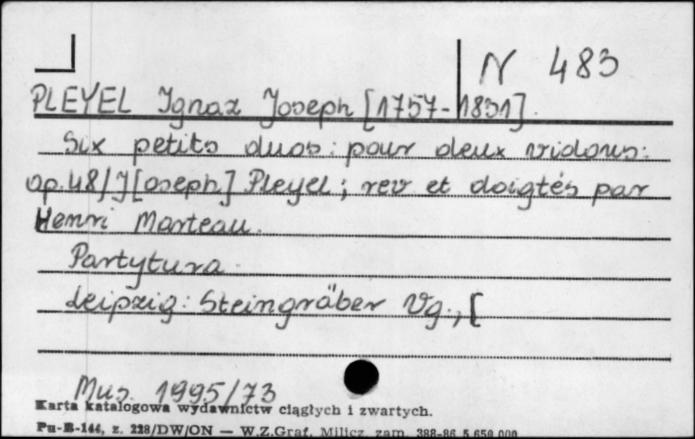 N 483
PLEYEL Ignaz Joseph [1757-1831].
Six petits duos : pour deux violons :
op. 48 / J[oseph] Pleyel ; rev et doigtés par
Henri Marteau.
Partytura.
Leipzig : Steingräber Vg., [
Mus. 1995/73
Karta katalogowa wydawnictw ciągłych i zwartych.
Pu-B-144, z. 228/DW/ON — W.Z.Graf. Milicz zam. 388-86 5.650.000